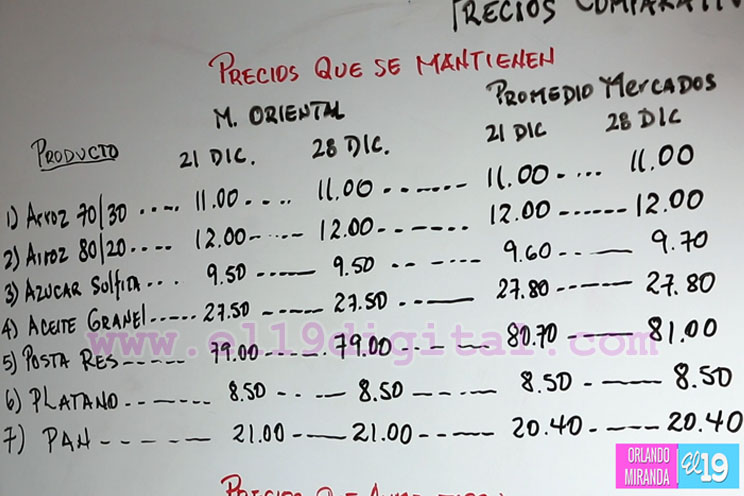 PRECIOS COMPARATIV
PRECIOS QUE SE MANTIENEN
M. ORIENTAL PROMEDIO MERCADOS
PRODUCTO 21 DIC. 28 DIC. 21 DIC 28 DIC
1) Arroz 70/30 ..... 11.00 .... 11.00 ....... 11.00 .... 11.00
2) Arroz 80/20 .... 12.00 ..... 12.00 ....... 12.00 ------ 12.00
3) AZUCAR Sulfita ... 9.50 ----- 9.50 ------ 9.60 ------ 9.70
4) ACEITE GRANEL ..... 27.50 ---- 27.50 ------ 27.80 ----- 27.80
www.el19digital.com
5) POSTA RES ----- 79.00 ----- 79.00 ------ 80.70 ----- 81.00
6) PLATANO ------- 8.50 ----- 8.50 ------ 8.50 ----- 8.50
7) PAN ------ 21.00 ----- 21.00 ----- 20.40 ----- 20.40
ORLANDO MIRANDA El 19